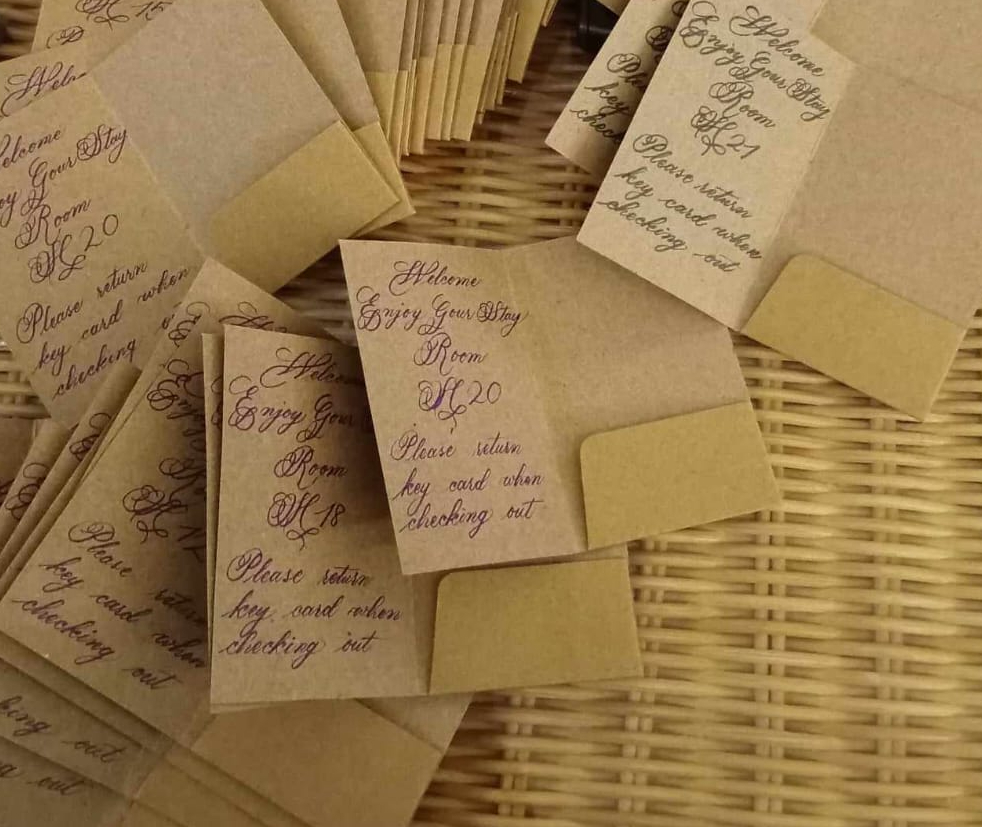 H 15
Welcome
Enjoy Your Stay
Room
H 21
Please return
key card when
checking out
Welcome
Your Stay
Room
H 20
Please return
key card when
checking
Welcome
Enjoy Your Stay
Room
H 20
Please return
key card when
checking out
Welcome
Enjoy Your
Room
H 18
Please return
key card when
checking out
Please return
key card when
checking out
out
out